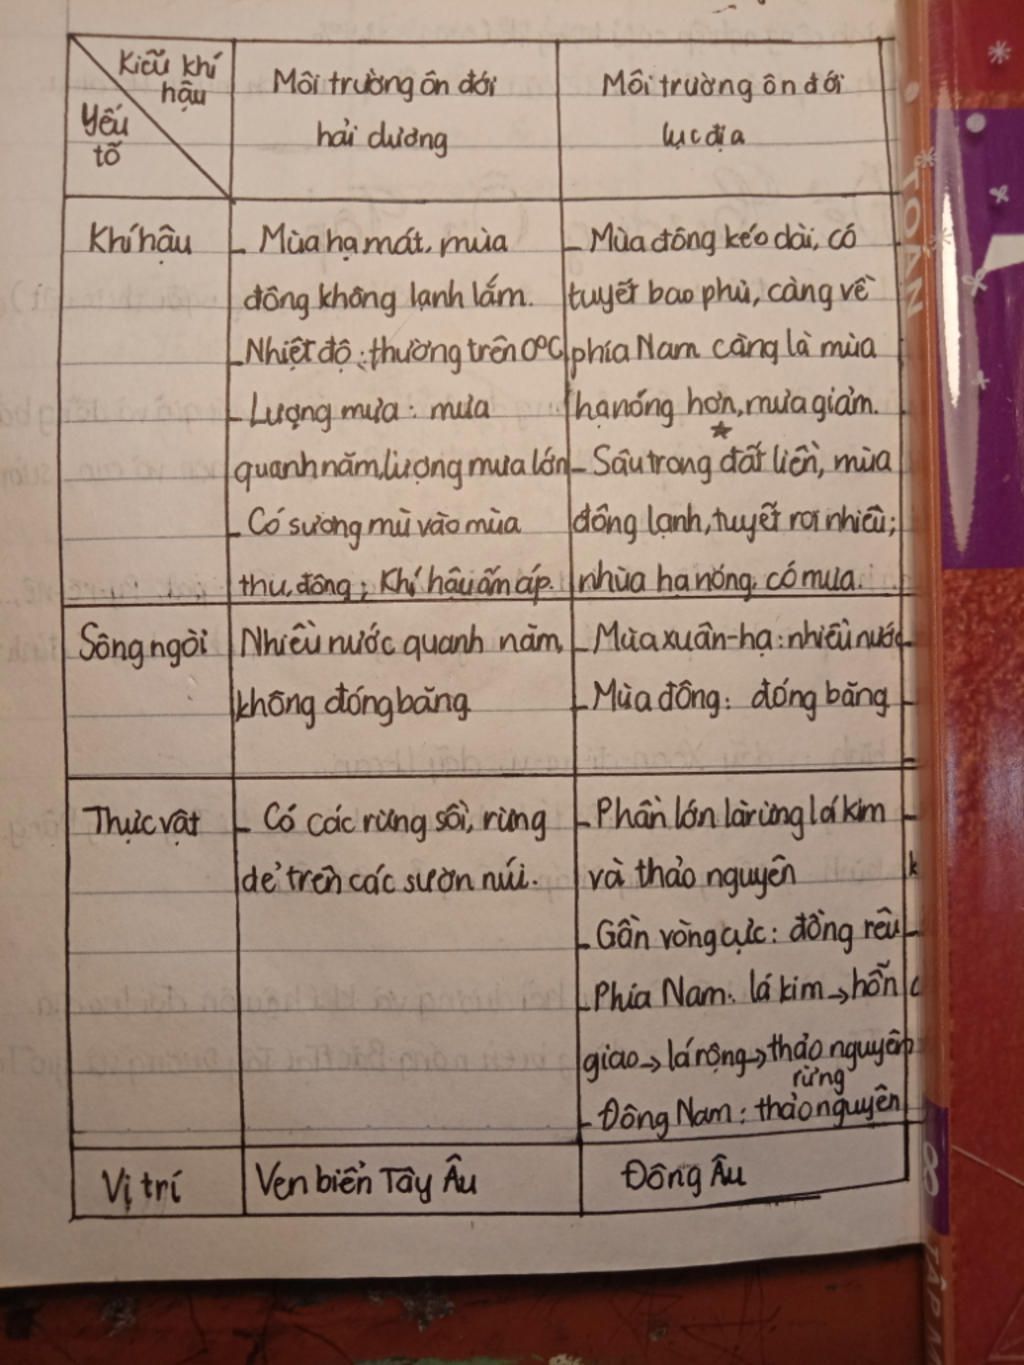 Kiểu khí
hậu
Yếu
tố
Môi trường ôn đới
hải dương
Môi trường ôn đới
lục địa
Khí hậu
- Mùa hạ mát, mùa
đông không lạnh lắm.
- Nhiệt độ: thường trên 0°C
- Lượng mưa: mưa
quanh năm, lượng mưa lớn
- Có sương mù vào mùa
thu, đông; Khí hậu ấm áp.
- Mùa đông kéo dài, có
tuyết bao phủ, càng về
phía Nam càng là mùa
hạ nóng hơn, mưa giảm.
- Sâu trong đất liền, mùa
đông lạnh, tuyết rơi nhiều;
nhùa hạ nóng, có mưa.
Sông ngòi
Nhiều nước quanh năm,
không đóng băng
- Mùa xuân-hạ: nhiều nước
- Mùa đông: đóng băng
Thực vật
- Có các rừng sồi, rừng
dẻ trên các sườn núi.
- Phần lớn là rừng lá kim
và thảo nguyên
- Gần vòng cực: đồng rêu
- Phía Nam: lá kim → hỗn
giao → lá rộng → thảo nguyên
rừng
- Đông Nam: thảo nguyên
Vị trí
Ven biển Tây Âu
Đông Âu
TOÁN
8
TẬP